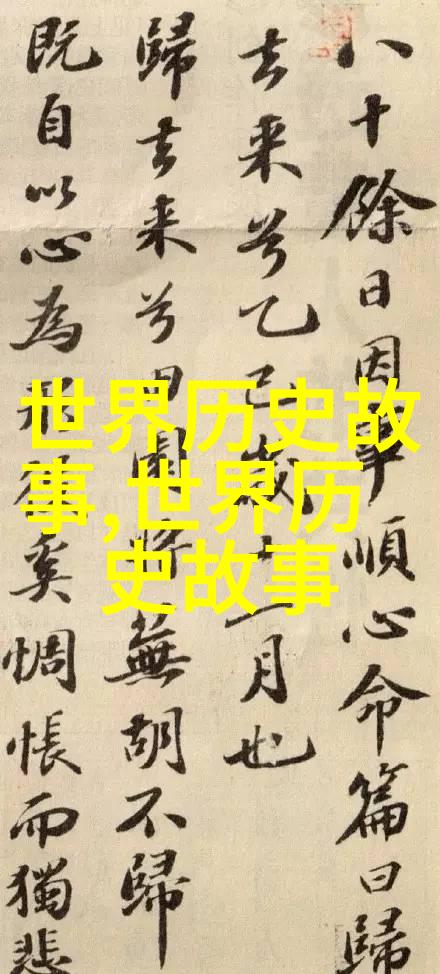 八十餘日因事順心命篇曰歸
去来兮乙巳歲十一月也
歸去来兮田園将蕪胡不歸
既自以心為形役奚惆悵而獨悲
世界历史故
事,世界历
史故事